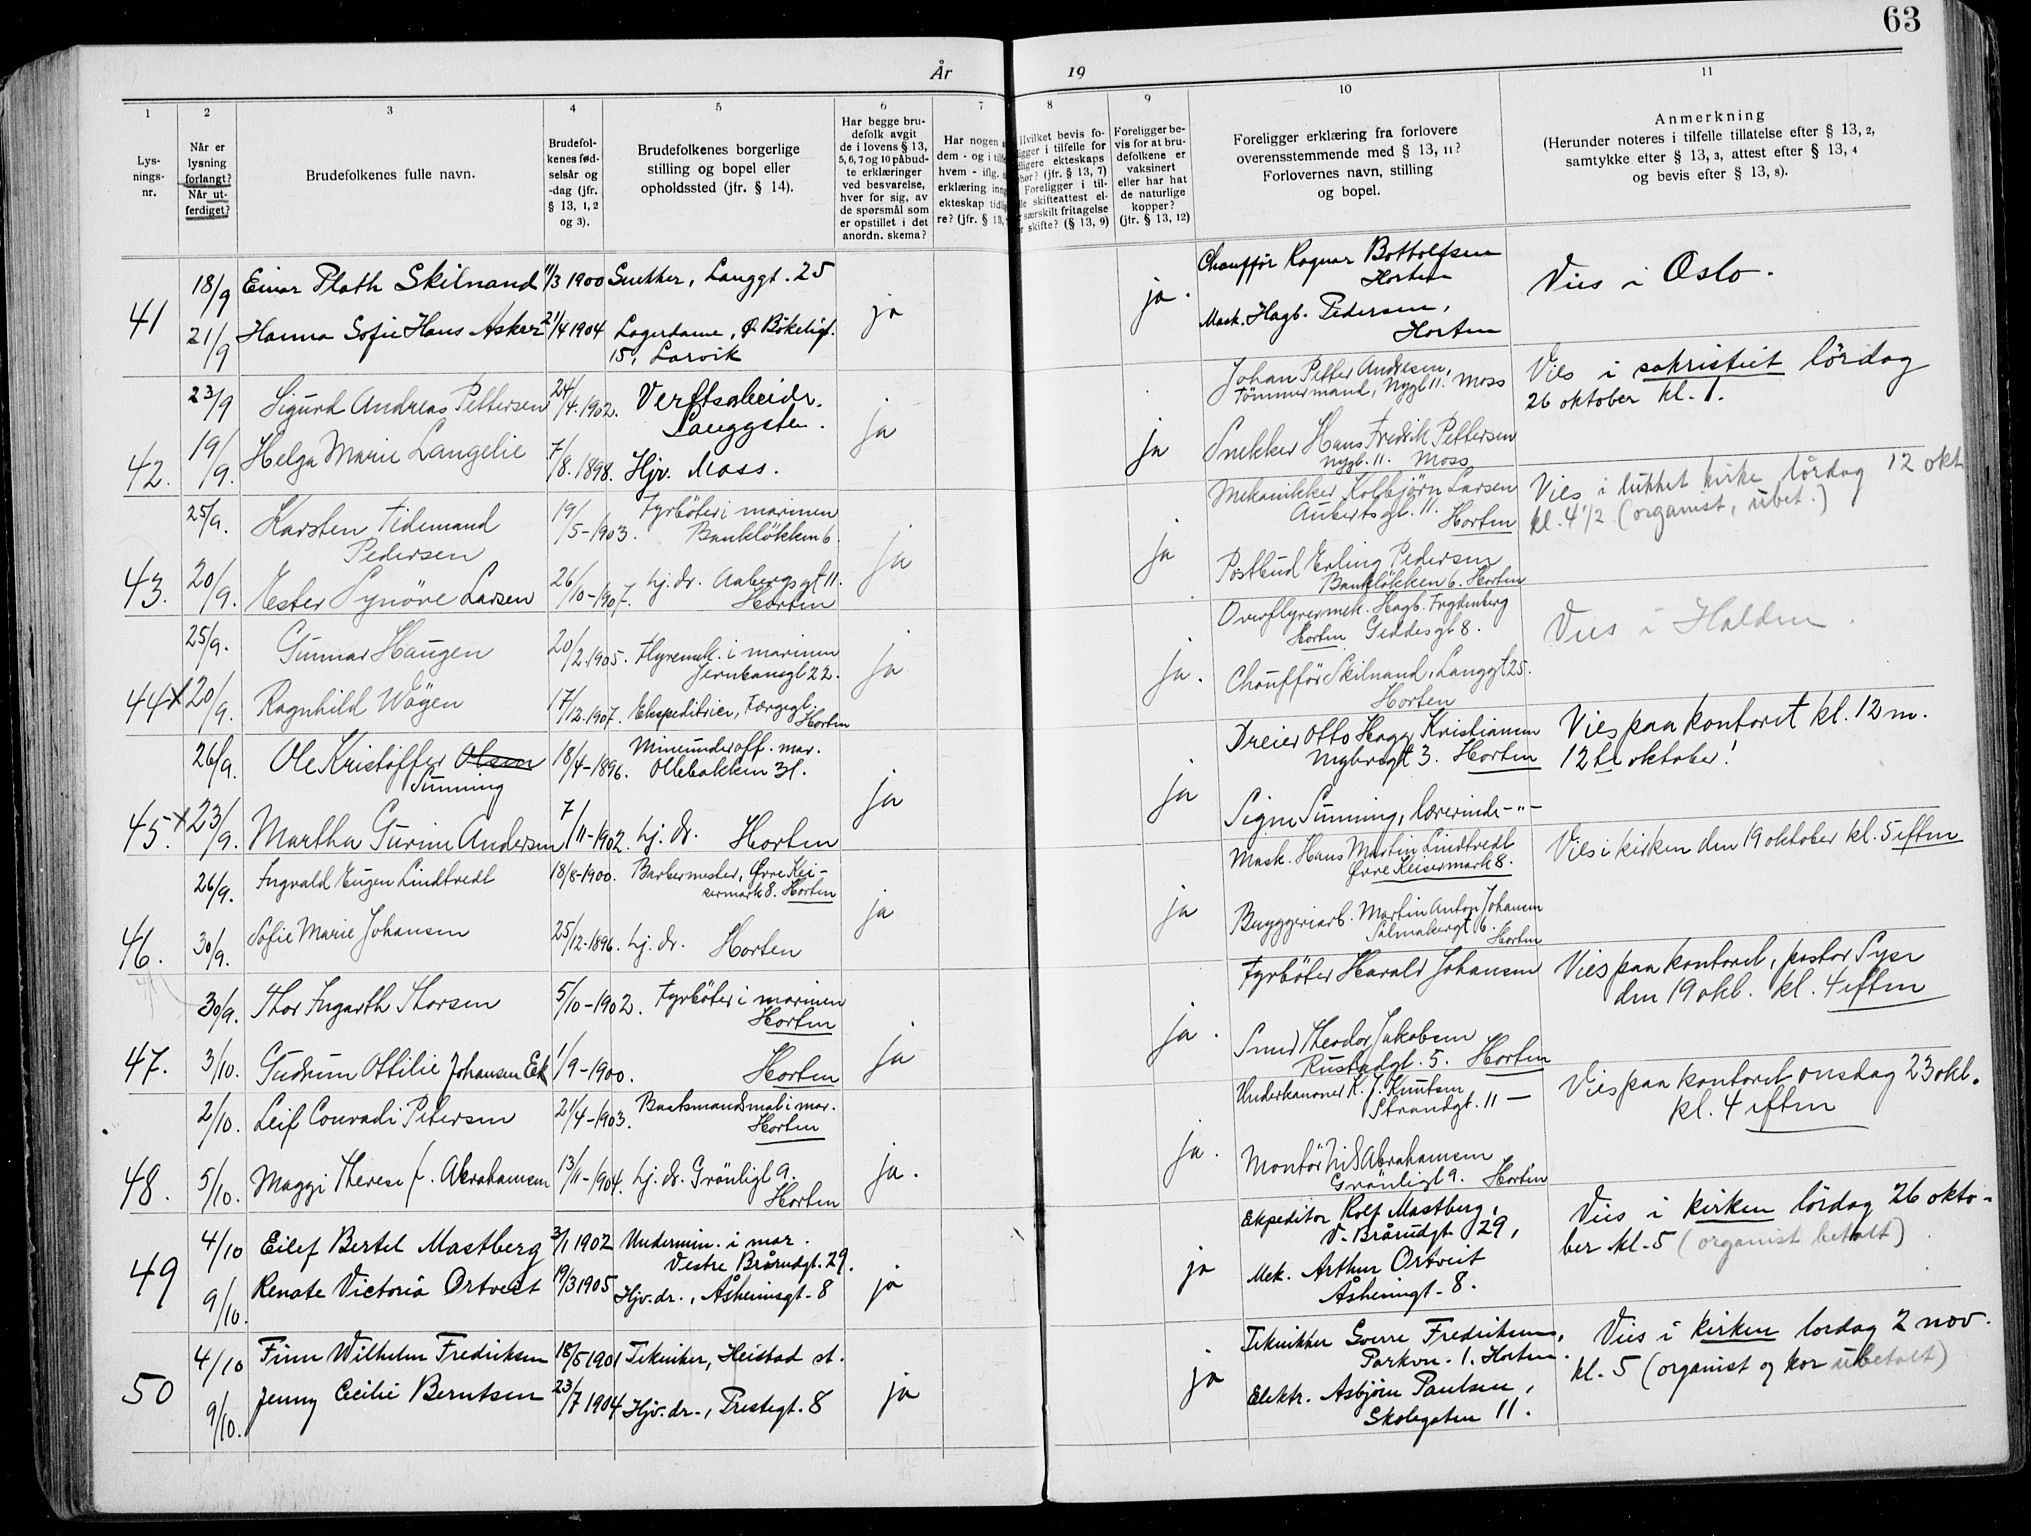 63
År 19
1 2 3 4 5 6 7 8 9 10 11
Lys-
nings-
nr.
Når er
lysning
forlangt?
Når ut-
ferdiget?
Brudefolkenes fulle navn.
Brudefol-
kenes fød-
selsår og
-dag (jfr.
§ 13, 1, 2
og 3).
Brudefolkenes borgerlige
stilling og bopel eller
opholdssted (jfr. § 14).
Har begge bru-
defolk avgit
de i lovens § 13,
5, 6, 7 og 10 påbud-
te erklæringer
ved besvarelse,
hver for sig, av
de spørsmål som
er opstillet i det
anordn. skema?
Har nogen
dem - og i
hvem - iflg.
erklæring
ekteskap
re? (jfr. § 13,
Hvilket bevis fo-
i tilfelle for
ekteskaps
(jfr. § 13, 7)
Foreligger i til-
skifteattest el-
særskilt fritagelse
skifte? (§ 13, 9)
Foreligger be-
vis for at bru-
defolkene er
vaksinert
eller har hat
de naturlige
kopper?
(jfr. § 13, 12)
Foreligger erklæring fra forlovere
overensstemmende med § 13, 11?
Forlovernes navn, stilling
og bopel.
Anmerkning
(Herunder noteres i tilfelle tillatelse efter § 13, 2,
samtykke etter § 13, 3, attest efter § 13, 4
og bevis efter § 13, 8).
41 18/9 Einar Plath Skilnand 11/3 1900 Snekker, Langgt. 25 ja ja. Chauffør Ragnar Bottolfsen
Horten
Vies i Oslo.
21/9 Hanna Sofie Hans Asker 21/4 1904 Lagerdame, Bökeligt.
15, Larvik
Mask. Hagb. Pedersen,
Horten
42. 23/9 Sigurd Andreas Pettersen 24/4.1902. Verftsarbeidr.
Langgaten.
ja ja Johan Petter Andresen,
Tømmermand, Nygt 11. Moss
Vies i sakristiet lördag
26 oktober kl. 1.
19/9. Helga Marie Langelie 7/8.1898. Hjv. Moss.
Snekker Hans Fredrik Pettersen
Nygt. 11. Moss
43. 25/9. Karsten Tidemand
Pedersen
19/5-1903. Fyrböter i marinen
Bankløkken 6.
ja ja Mekanikker Kolbjørn Larsen
Aubertsgt. 11.
Horten
Vies i lukket kirke lördag 12 okt
kl. 4 1/2 (organist, ubet.)
20/9. Ester Synöve Larsen 26/10-1907. Hj. dr. Aabergsgt 11.
Horten
Postbud Erling Pedersen
Bankløkken 6. Horten
44 x 25/9. Gunnar Haugen 20/2.1905. Flyremek. i marinen
Jernbanegt 22.
ja ja. Overflyremek. Hagb. Frydenberg
Horten Geddesgt 8.
Vies i Halden.
20/9. Ragnhild Wågen 17/12.1907. Ekspeditrice, Færgegt.
Horten
Chauffør Skilnand, Langgt 25.
Horten
45. x 26/9. Ole Kristoffer Olsen
Sunning
18/4-1896. Mineunderoff. mar.
Ollebakken 31.
ja ja Dreier Otto Hagr Kristiansen
Nybrogt 3. Horten
Vies paa kontoret kl. 12 m.
12te oktober!
23/9. Martha Gurine Andersen 7/11-1902. Hj. dr. Horten
Signe Sunning, lærerinde -"-
46. 26/9. Ingvald Eugen Lindtvedt 18/8-1900. Barbermester, Øvre Kei-
sermark 8. Horten
ja ja Mask. Hans Martin Lindtvedt
Øvre Keisermark 8.
Vies i kirken den 19 oktober kl. 5 eftm
30/9. Sofie Marie Johansen 25/12-1896. Hj. dr. Horten
Bryggeriarb. Martin Anton Johansen
Salmakergt 6.
Horten
47. 30/9. Thor Ingarth Thorsen 5/10-1902. Fyrböter i marinen
Horten
ja ja. Fyrböter Harald Johansen
Vies paa kontoret, pastor Syse
den 19 okt. kl. 4 eftm
3/10. Gudrun Ottilie Johansen Eek 1/9-1900. Horten
Smed Theodor Jakobsen
Rustadgt. 5. Horten
48. 2/10. Leif Conradi Petersen 21/4-1903. Baatsmandsmat i mar.
Horten
ja. ja. Underkanoner K. J. Knutsen
Strandgt. 11 -
Vies paa kontoret onsdag 23 okt.
kl. 4 eftm
5/10. Maggi Therese f. Abrahamsen 13/11-1904. Hj. dr. Grönligt 9.
Horten
Montör Abrahamsen
Grönligt 9. Horten
49 4/10 Eilef Bertel Mastberg 3/1 1902 Undermin. i mar.
Vestre Brårudgt. 29.
ja ja Ekspeditör Rolf Mastberg,
V. Brårudgt 29,
Vies i kirken lördag 26 okto-
ber kl. 5 (organist betalt)
9/10. Renate Victoria Ortveit 19/3 1905 Hjv. dr., Åsheimsgt. 8
Mek. Arthur Ortveit
Åsheimgt. 8.
50 4/10 Finn Wilhelm Fredriksen 18/5 1901 Tekniker, Heistad st.
ja ja Teknikker Sverre Fredriksen,
Parkvn. 1. Horten.
Vies i kirken lordag 2 nov.
kl. 5 (organist og kor ubetalt)
9/10. Jenny Cecilie Berntsen 23/7 1904 Hjv. dr., Prestegt. 8
Elektr. Asbjörn Paulsen,
Skolegaten 11.